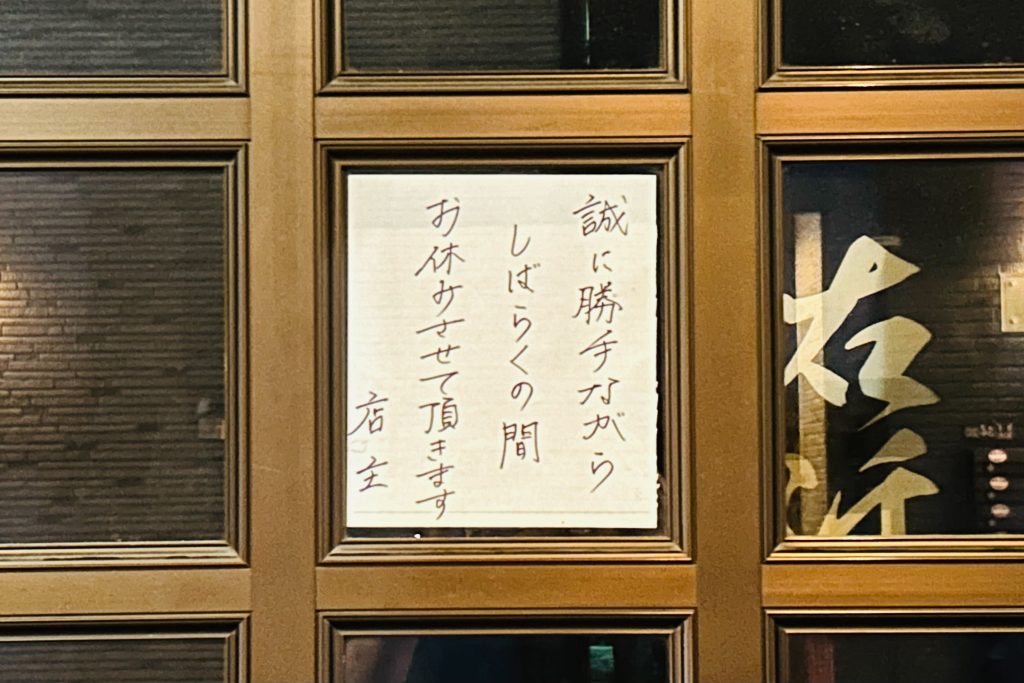 誠に勝手ながら
しばらくの間
お休みさせて頂きます
店主